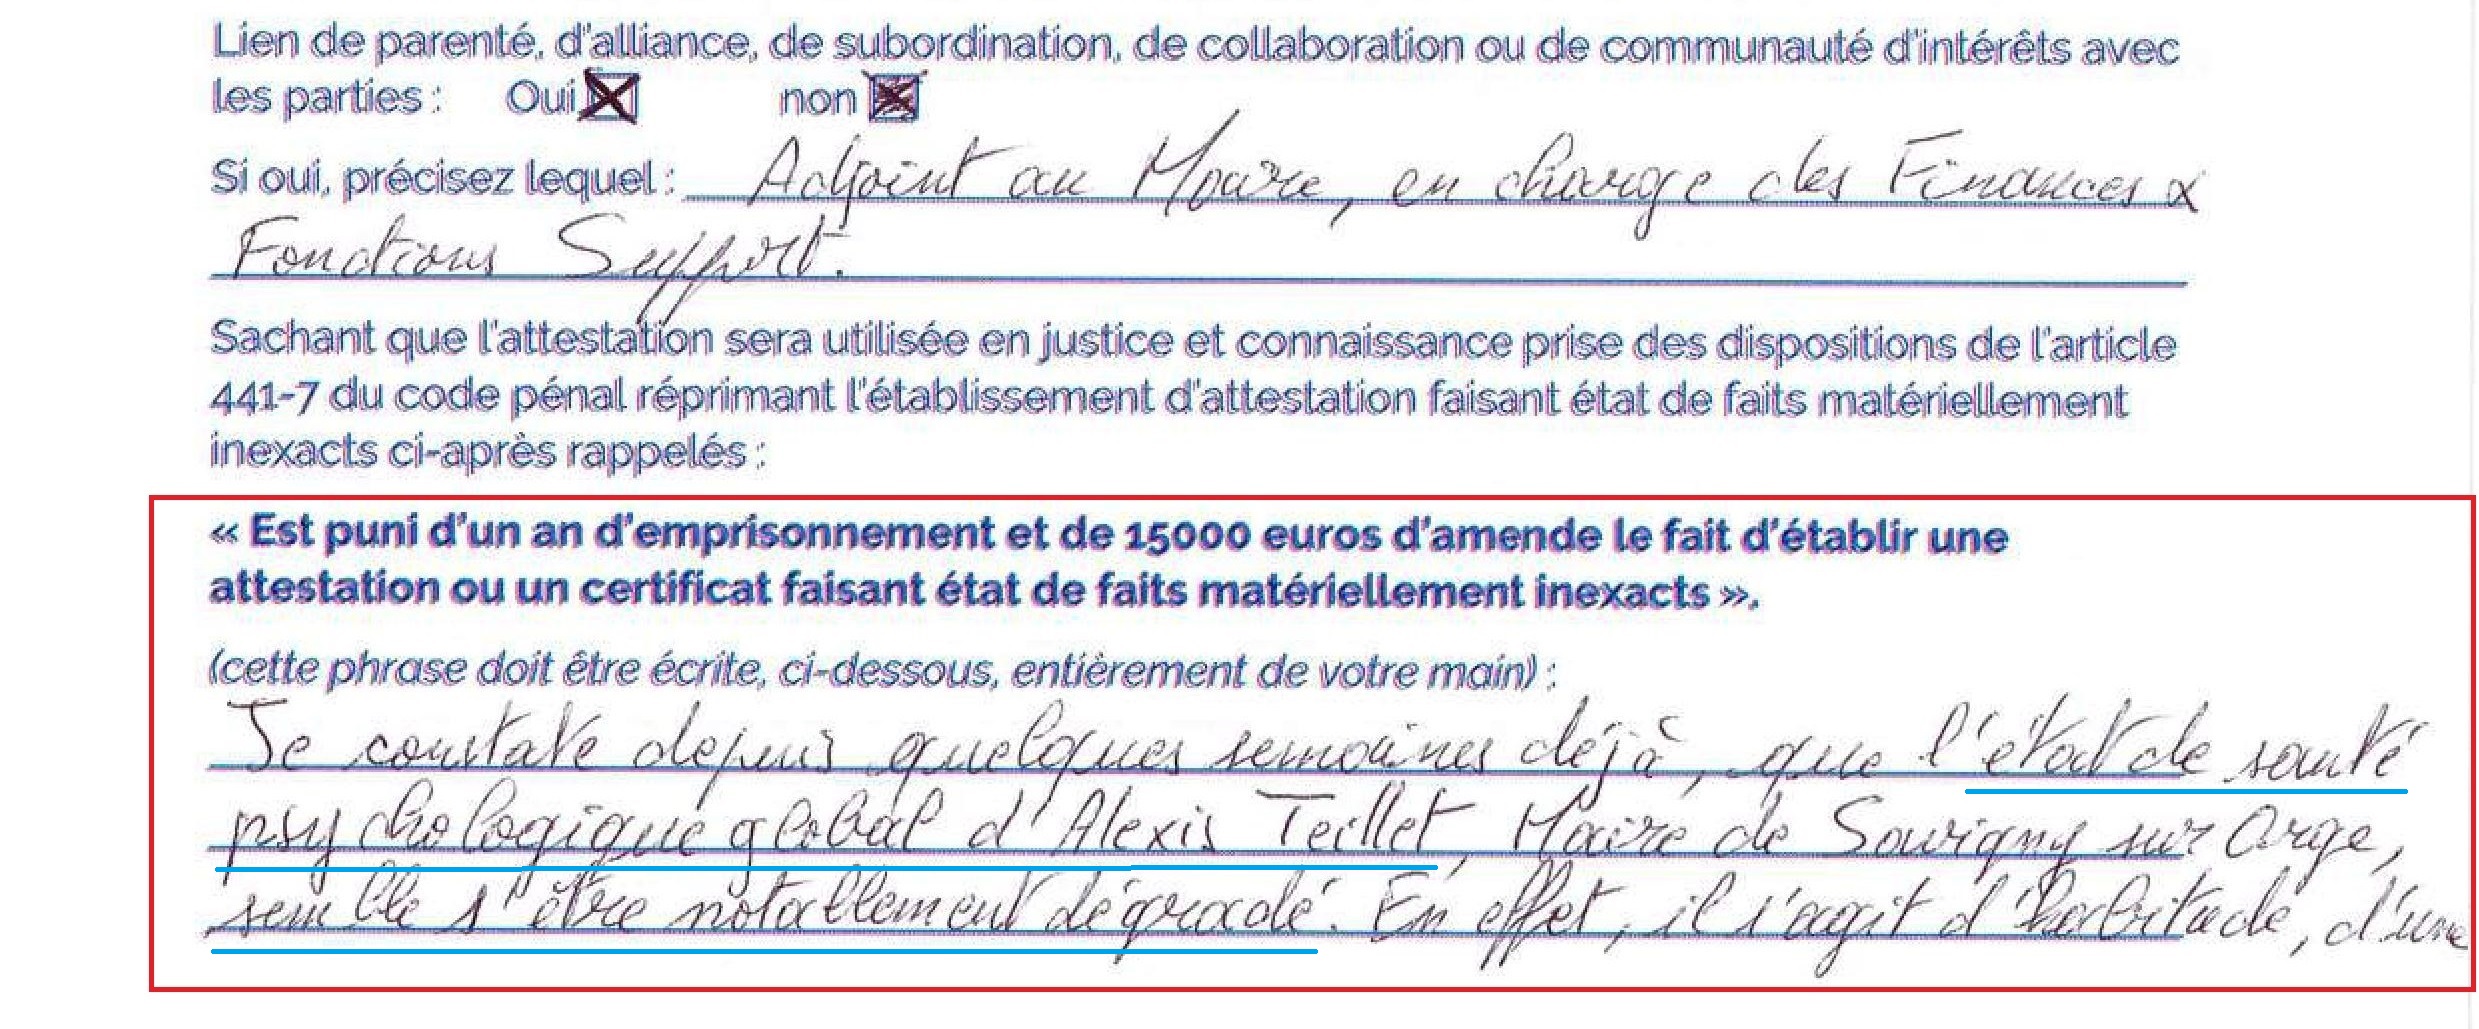 Lien de parenté, d'alliance, de subordination, de collaboration ou de communauté d'intérêts avec
les parties : Oui non
Si oui, précisez lequel : Adjoint au Maire, en charge des Finances &
Fonctions Support.
Sachant que l'attestation sera utilisée en justice et connaissance prise des dispositions de l'article
441-7 du code pénal réprimant l'établissement d'attestation faisant état de faits matériellement
inexacts ci-après rappelés :
« Est puni d'un an d'emprisonnement et de 15000 euros d'amende le fait d'établir une
attestation ou un certificat faisant état de faits matériellement inexacts ».
(cette phrase doit être écrite, ci-dessous, entièrement de votre main) :
Je constate depuis quelques semaines déjà, que l'état de santé
psychologique global d'Alexis Teillet, Maire de Savigny sur Orge,
semble s'être notablement dégradé. En effet, il s'agit d'habitude, d'une